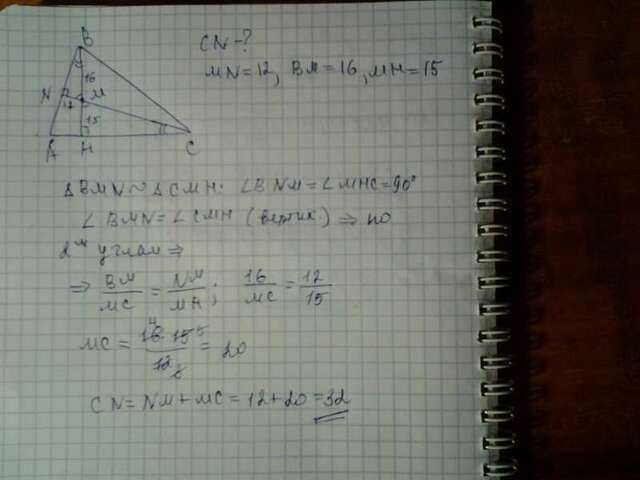 B
16
N
12
M
15
A H C
CN-?
MN=12, BM=16, MH=15
ΔBMN∾ΔCMH: ∠BNM=∠MHC=90°
∠BMN=∠CMH (вертик) ⇒ по
2ᵐ углам ⇒
⇒ BM/MC = NM/MH; 16/MC = 12/15
MC = 16 15/12 = 20
CN=NM+MC=12+20=32